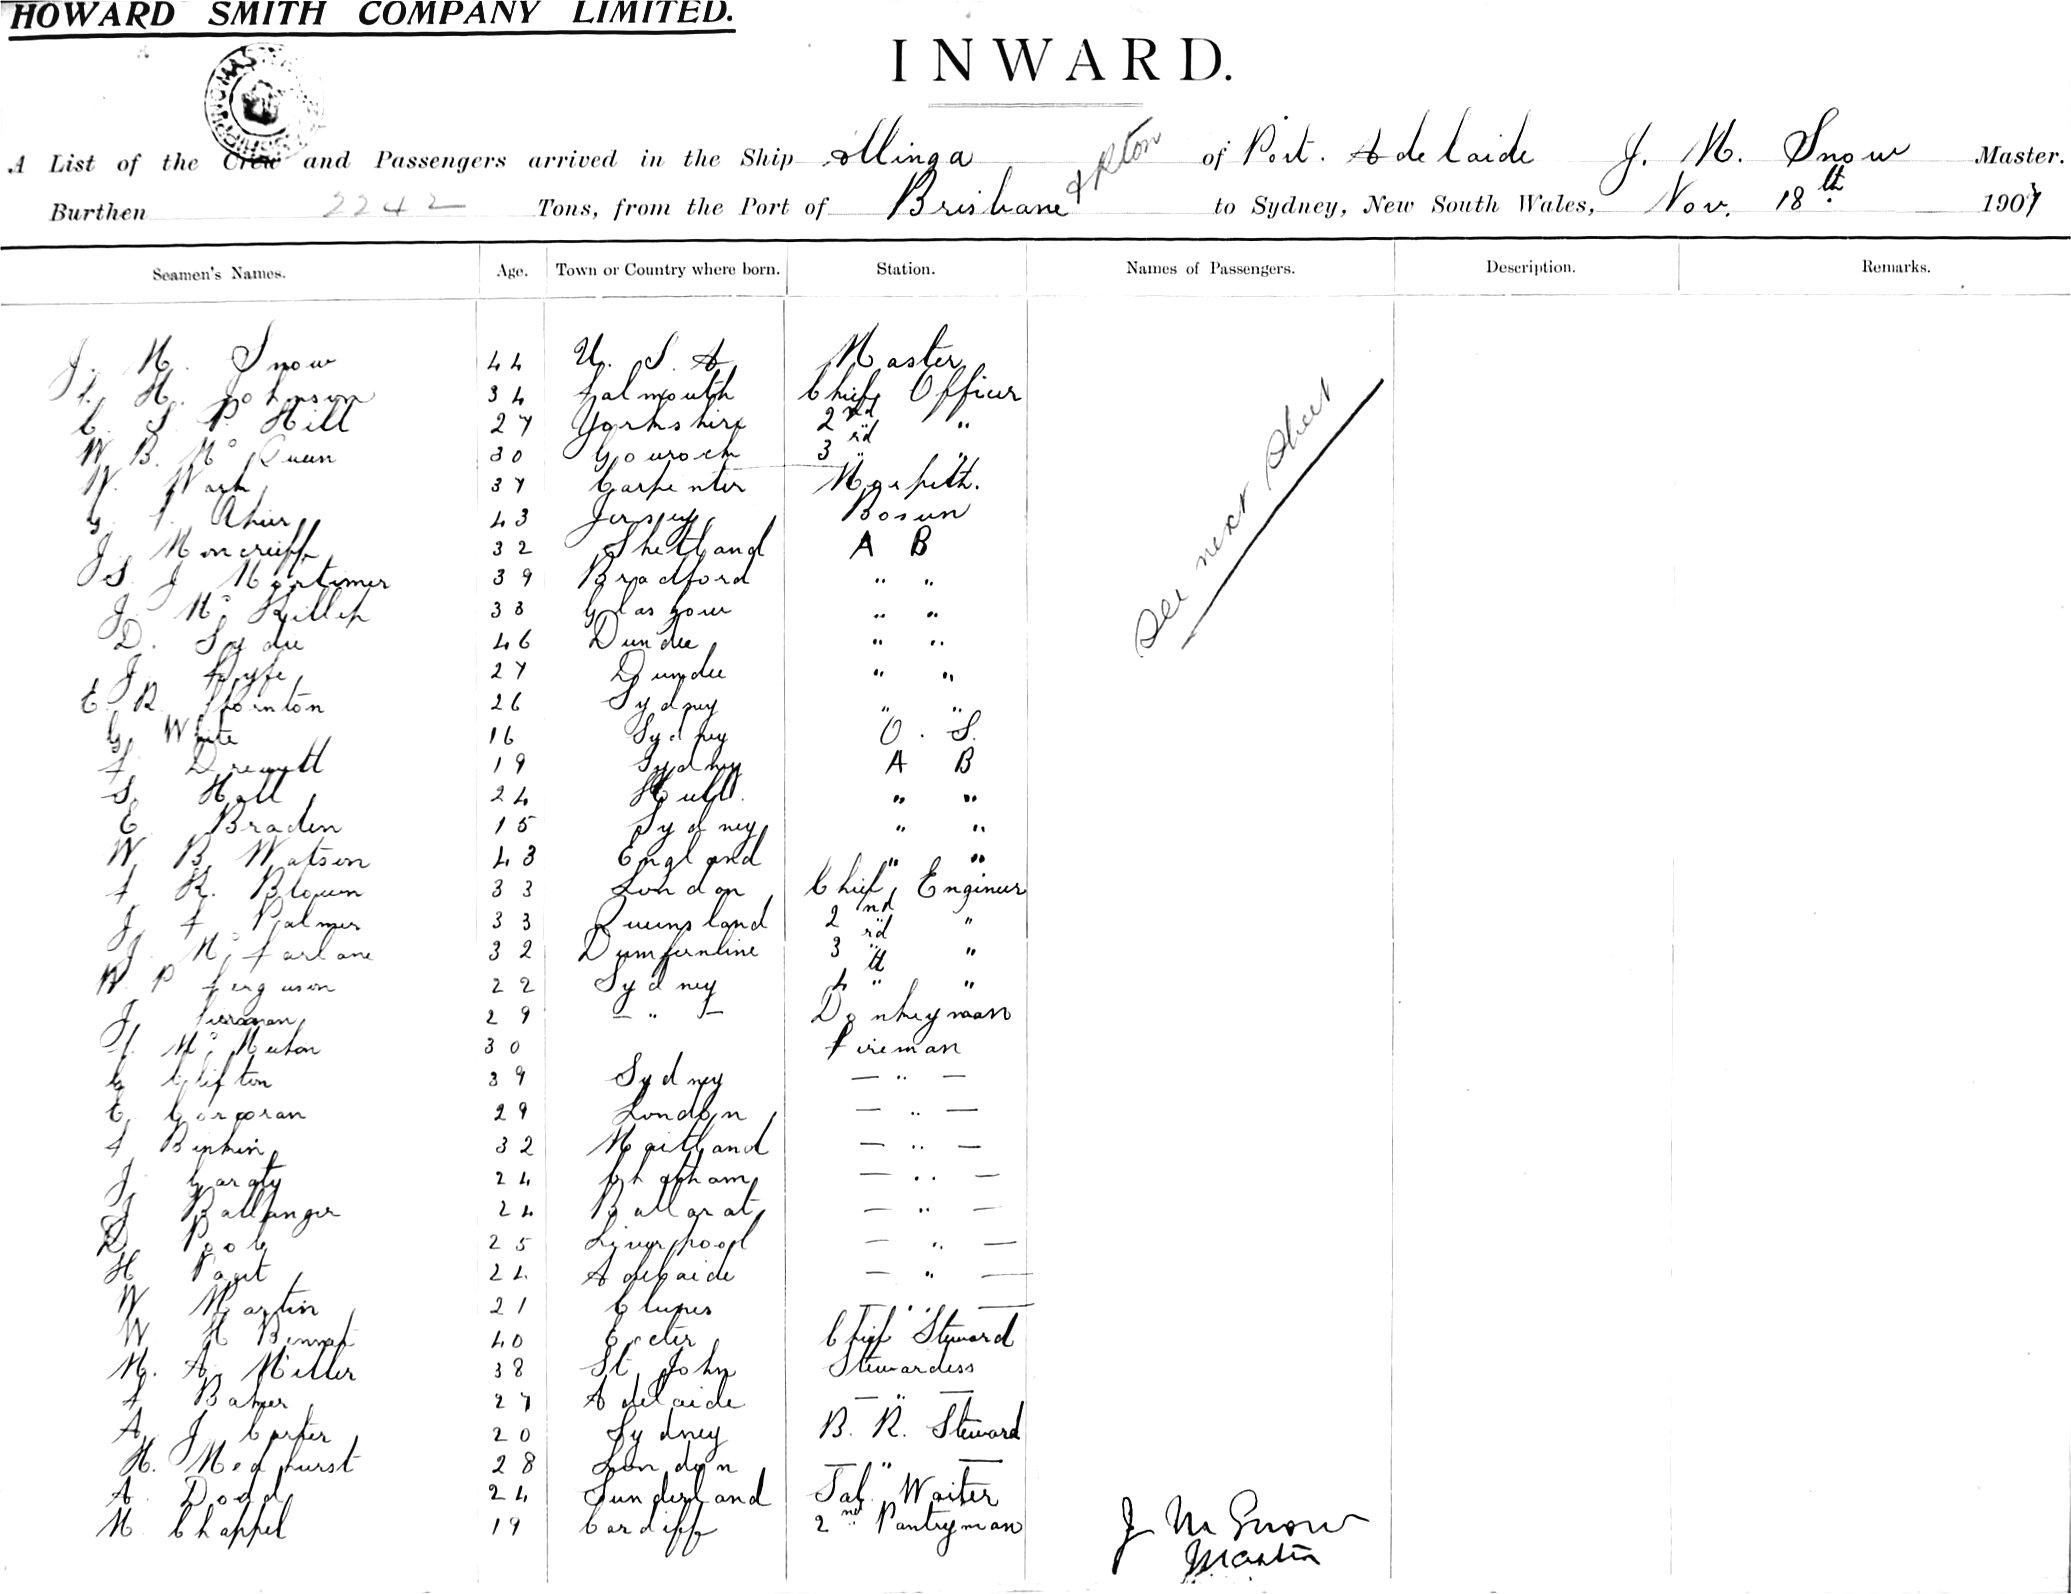 HOWARD SMITH COMPANY LIMITED.
INWARD.
A List of the Crew and Passengers arrived in the Ship Allinga of Port. Adelaide J. M. Snow Master.
Burthen 2242 Tons, from the Port of Brisbane & Rton to Sydney, New South Wales, Nov. 18th 1907
Seamen's Names. Age. Town or Country where born. Station. Names of Passengers. Description. Remarks.
J. M. Snow 44 U. S. A Master
H. Johnson 34 Falmouth Chief Officer
C. S. P. Hill 27 Yorkshire 2nd "
W. B. Mc Queen 30 Gourock 3rd "
W. Wark 37 Carpenter Morpeth.
G. F. Ahier 43 Jersey Bosun
J. Moncrieff 32 Shetland A B
S. J Mortimer 39 Bradford " "
J. Mc Killop 38 Glasgow " "
D. Sydie 46 Dundee " "
J. Fyfe 27 Dundee " "
E. R. Thornton 26 Sydney " "
G. White 16 Sydney O. S.
F. Drewett 19 Sydney A B
S. Hall 24 Hull. " "
E. Braden 15 Sydney " "
W. B. Watson 43 England " "
F. R. Brown 33 London Chief Engineer
J. F. Palmer 33 Queensland 2nd "
J. Mc Farlane 32 Dumfernline 3rd "
W. P Ferguson 22 Sydney 4th "
J. 29 — " — Donkeyman
Mc 30 Fireman
G Clifton 39 Sydney — " —
C. Corporan 29 London — " —
F 32 Maitland — " —
J. Garaty 24 Chatham — " —
J Ballinger 24 Ballarat — " —
D. Poole 25 Liverpool — " —
H Paget 24 Adelaide — " —
W Martin 21 Clunes — " —
W. H 40 Exeter Chief Steward
M. A. Miller 38 St John Stewardess
F Baker 27 Adelaide — " —
A. J Carter 20 Sydney B. R. Steward
H. Medhurst 28 London — " —
A. Dodd 24 Sunderland Sal. Waiter
M. Chappel 19 Cardiff 2nd Pantryman
See next sheet
J M Snow
Master